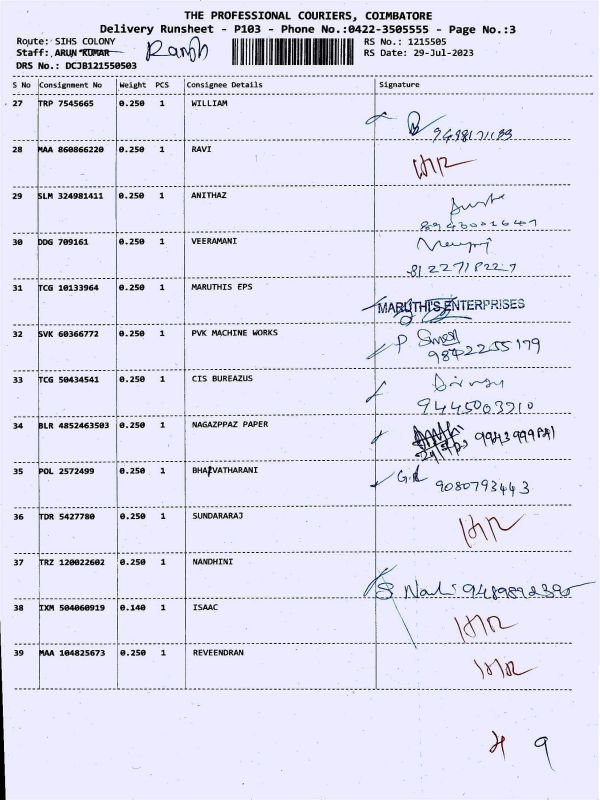 THE PROFESSIONAL COURIERS, COIMBATORE
Delivery Runsheet - P103 - Phone No.:0422-3505555 - Page No.:3
Route: SIHS COLONY RS No.: 1215505
Staff: ARUN KUMAR RS Date: 29-Jul-2023
DRS No.: DCJB121550503
S No Consignment No Weight PCS Consignee Details Signature
27 TRP 7545665 0.250 1 WILLIAM
28 MAA 860866220 0.250 1 RAVI
29 SLM 324981411 0.250 1 ANITHAZ
30 DDG 709161 0.250 1 VEERAMANI
31 TCG 10133964 0.250 1 MARUTHIS EPS
MARUTHI'S ENTERPRISES
32 SVK 60366772 0.250 1 PVK MACHINE WORKS
9842255179
33 TCG 50434541 0.250 1 CIS BUREAZUS
9445003910
34 BLR 4852463503 0.250 1 NAGAZPPAZ PAPER
35 POL 2572499 0.250 1 BHAZVATHARANI
9080793443
36 TDR 5427780 0.250 1 SUNDARARAJ
37 TRZ 120022602 0.250 1 NANDHINI
38 IXM 504060919 0.140 1 ISAAC
39 MAA 104825673 0.250 1 REVEENDRAN
9